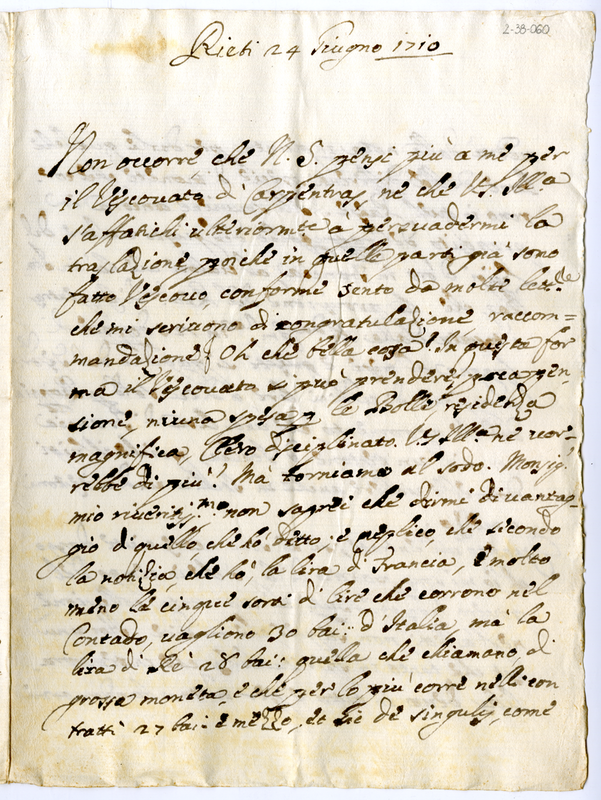 2-38-060
Rieti 24 Giugno 1710
Non occorre che N. S. pensi più a me per
il Vescovato di Carpentras, ne che VS. Ill.a
s'affatichi ulteriormte à persuadermi la
traslazione, poiche in quelle parti già sono
fatto Vescovo, conforme sento da molte lett.
che mi scrivono di congratulazione, raccom=
mandazione. Oh che bella cosa! In questa for
ma il Vescovato si può prendere, poca pen-
sione, niuna spesa p le Bolle, residenza
magnifica, Clero disciplinato. VS Illa ne vor-
rebbe di più? Mà torniamo al sodo. Monsig.
mio riveritissmo non saprei che dirmi di vantag-
gio di quello che hò detto: e replico, che secondo
la notizia che hò, la lira di Francia, è molto
meno le cinque sorti di lire che corrono nel
Contado, vagliono 30 bai: d'Italia, mà la
lira di Rè 28 bai: quella che chiamano di
grossa moneta, e che per lo più corre nelli con
tratti 27 bai: e mezzo, et sic de singulis, come